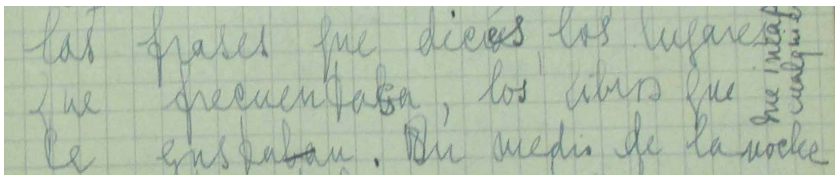 las frases que dices, los lugares
que frecuentaba, los libros que
le gustaban. En medio de la noche
cualquie